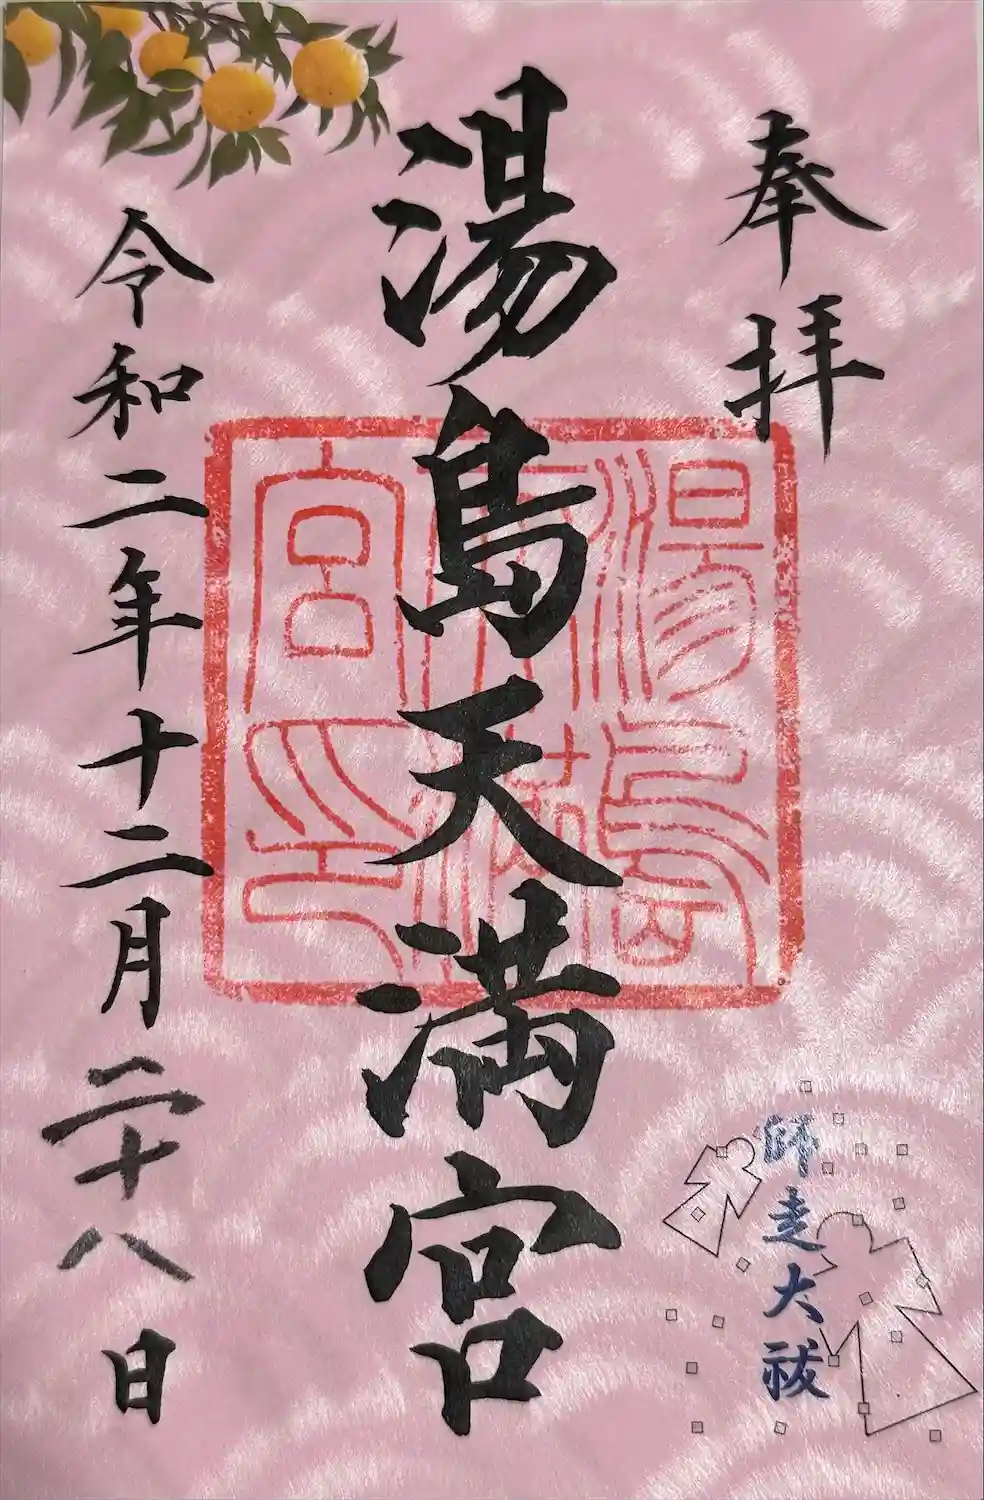 奉拝
湯島天満宮
湯島天満宮印
師走大祓
令和二年十二月二十八日